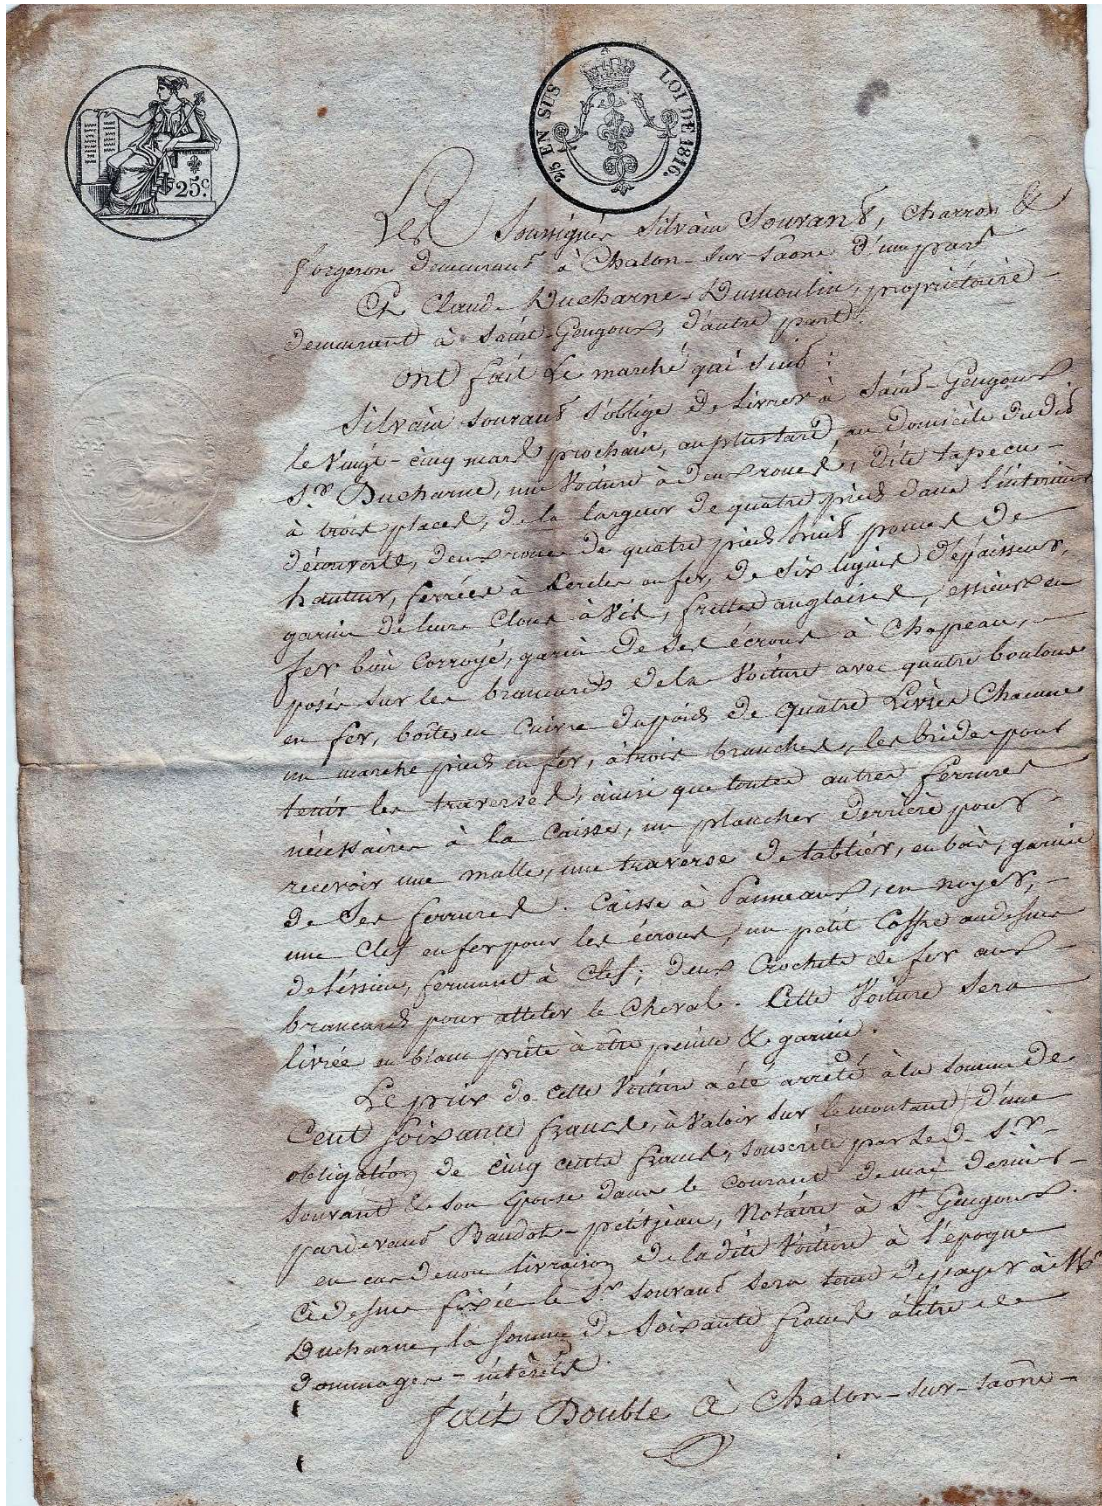 25.c
2/5 EN SUS LOI DE 1816.
Les Soussignés Silvain Souvant, Charron &
forgeron demeurant à Chalon-sur-Saône d'une part
Et Claude Ducharne-Dumoulin, propriétaire
demeurant à Saint-Gengoux, d'autre part.
ont fait le marché qui suit :
Silvain Souvant s'oblige de livrer à Saint-Gengoux
le Vingt-cinq mars prochain, au plus tard, au domicile dudit
S.r Ducharne, une Voiture à deux roues, dite tapecu
à trois places, de la largeur de quatre pieds dans l'intérieur
découverte, deux roues de quatre pieds huit pouces de
hauteur, ferrées à Cercles en fer, de six lignes d'épaisseur,
garnie de leurs Clous à Vis, frettes anglaises, essieux en
fer bien Corroyé, garni de ses écrous à Chapeau,
posés sur les brancards de la Voiture avec quatre boulons
en fer, boîtes en Cuivre du poids de quatre Livres Chacune
un marche pieds en fer, à trois branches, les brides pour
tenir les traverses, ainsi que toutes autres ferrures
nécessaires à la Caisse, un plancher derrière pour
recevoir une malle, une traverse de tablier, en bois, garnie
de ses ferrures. Caisse à Panneaux, en noyer,
une Clef en fer pour les écrous, un petit Coffre au dessus
de l'éssieu, fermant à Clef; deux Crochets de fer aux
brancards pour atteler le Cheval. Cette Voiture sera
livrée en blanc prête à être peinte & garnie.
Le prix de cette Voiture a été arrêté à la somme de
Cent soixante francs, à Valoir sur le montant d'une
obligation de cinq cents francs, souscrite par le d. S.r
Souvant & son épouse dans le courant de mai dernier
pardevant Baudot-petitjean, Notaire à St Gengoux.
en cas de non livraison de la dite Voiture à l'époque
ci dessus fixée le Sr Souvant sera tenu de payer à Mr
Ducharne, la somme de Soixante francs à titre de
dommages-intérêts.
fait Double à Chalon-sur-Saône